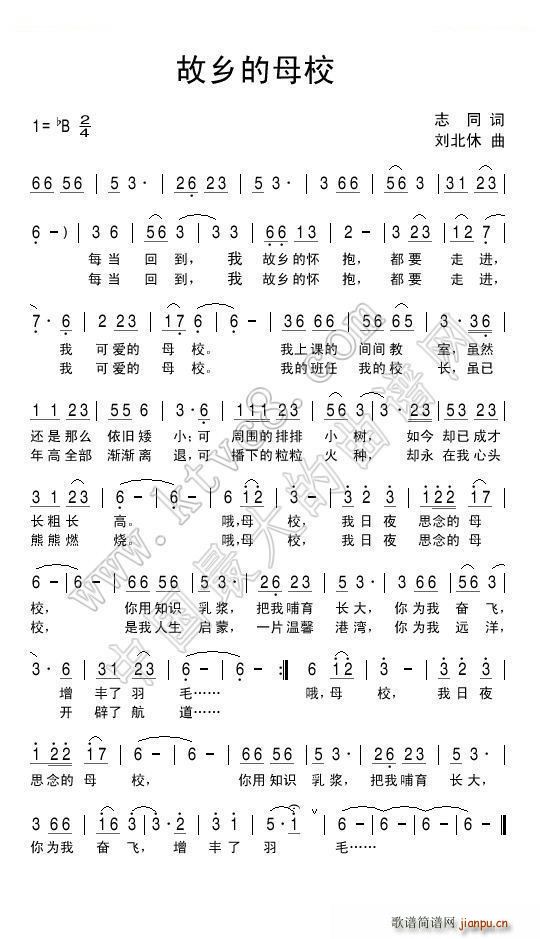 故乡的母校
1=♭B 2/4
志 同 词
刘北休 曲
66 56 | 5 3· | 26 23 | 5 3· | 3 66 | 56 3 | 31 23 |
6 -) | 3 6 | 56 3 | 3 3 | 66 13 | 2 - | 3 23 | 12 7 |
每当 回到, 我 故乡的怀 抱, 都要 走进,
每当 回到, 我 故乡的怀 抱, 都要 走进,
7· 6 | 2 23 | 17 6 | 6 - | 36 66 | 56 65 | 3· 36 |
我 可爱的 母 校。 我上课的 间间教 室,虽然
我 可爱的 母 校。 我的班任 我的校 长,虽已
1 1 23 | 55 6 | 3· 6 | 11 1 23 | 55 3 | 3· 23 |
还是那么 依旧矮 小;可 周围的排排 小 树, 如今 却已成才
年高全部 渐渐离 退,可 播下的粒粒 火 种, 却永 在我心头
31 23 | 6 - | 6 - | 6 12 | 3· | 3 2 3 | 122 17 |
长粗长 高。 哦,母 校, 我日夜 思念的 母
熊熊燃 烧。 哦,母 校, 我日夜 思念的 母
6 - | 6 - | 66 56 | 5 3· | 26 23 | 5 3· | 3 66 | 56 3 |
校, 你用知识 乳浆, 把我哺育 长大, 你为我 奋飞,
校, 是我人生 启蒙, 一片温馨 港湾, 你为我 远洋,
3· 6 | 31 23 | 6 - | 6 - :‖ 6 12 | 3· | 3 2 3 |
增 丰了羽 毛…… 哦,母 校, 我日夜
开 辟了航 道……
1 22 17 | 6 - | 6 - | 66 56 | 5 3· | 26 23 | 5 3· |
思念的 母 校, 你用知识 乳浆, 把我哺育 长大,
3 66 | 16 3 | 3· 2 | 3 1 | 5· 1 | 6 - | 6 - | 6 - ‖
你为我 奋飞, 增 丰了 羽 毛……
www.ktvc8.com
中国最大的曲谱网
歌谱简谱网
jianpu.cn